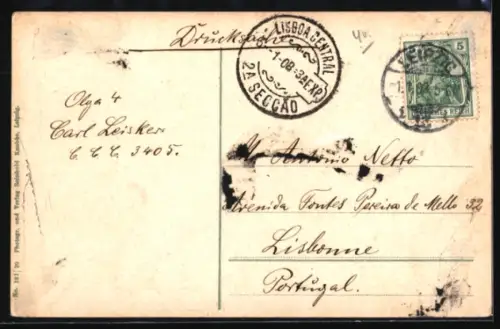 Drucksache
LISBOA CENTRAL
1-08-3AEXP
2A SECÇÃO
LEIPZIG
5
Olga &
Carl Leisker
C.C.C. 3405.
Mr Antonio Netto
Avenida Fontes Pereira de Mello 32
Lisbonne
Portugal.
No. 187/20 Photogr. und Verlag Reinhold Leipzig.